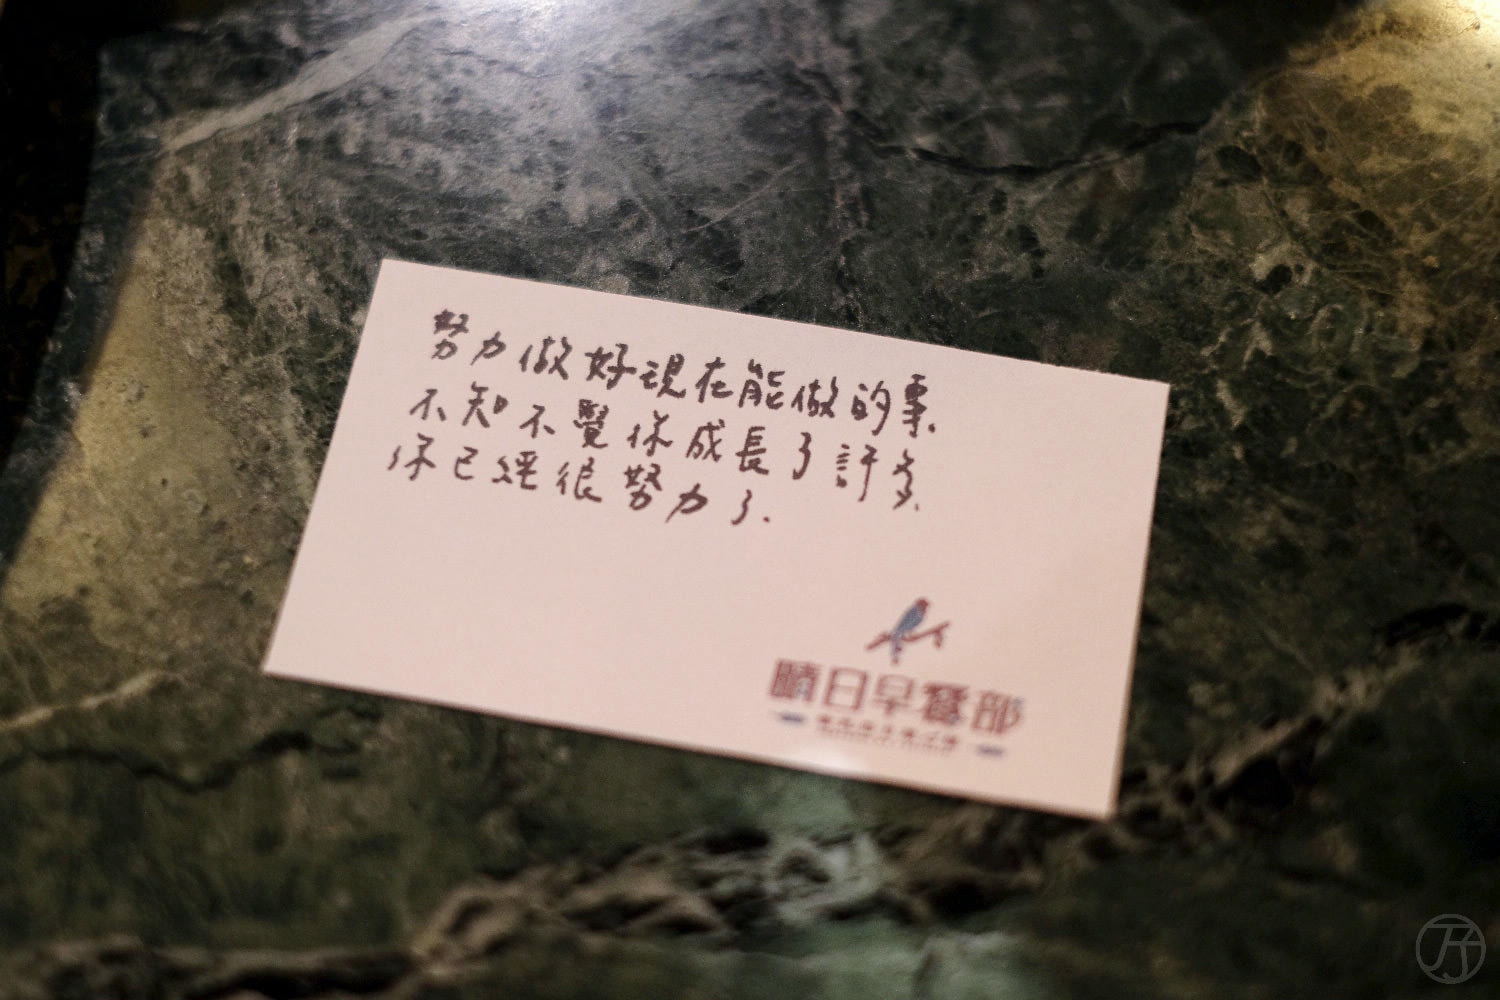 努力做好現在能做的事.
不知不覺你成長了許多.
你已經很努力了.
晴日早餐部